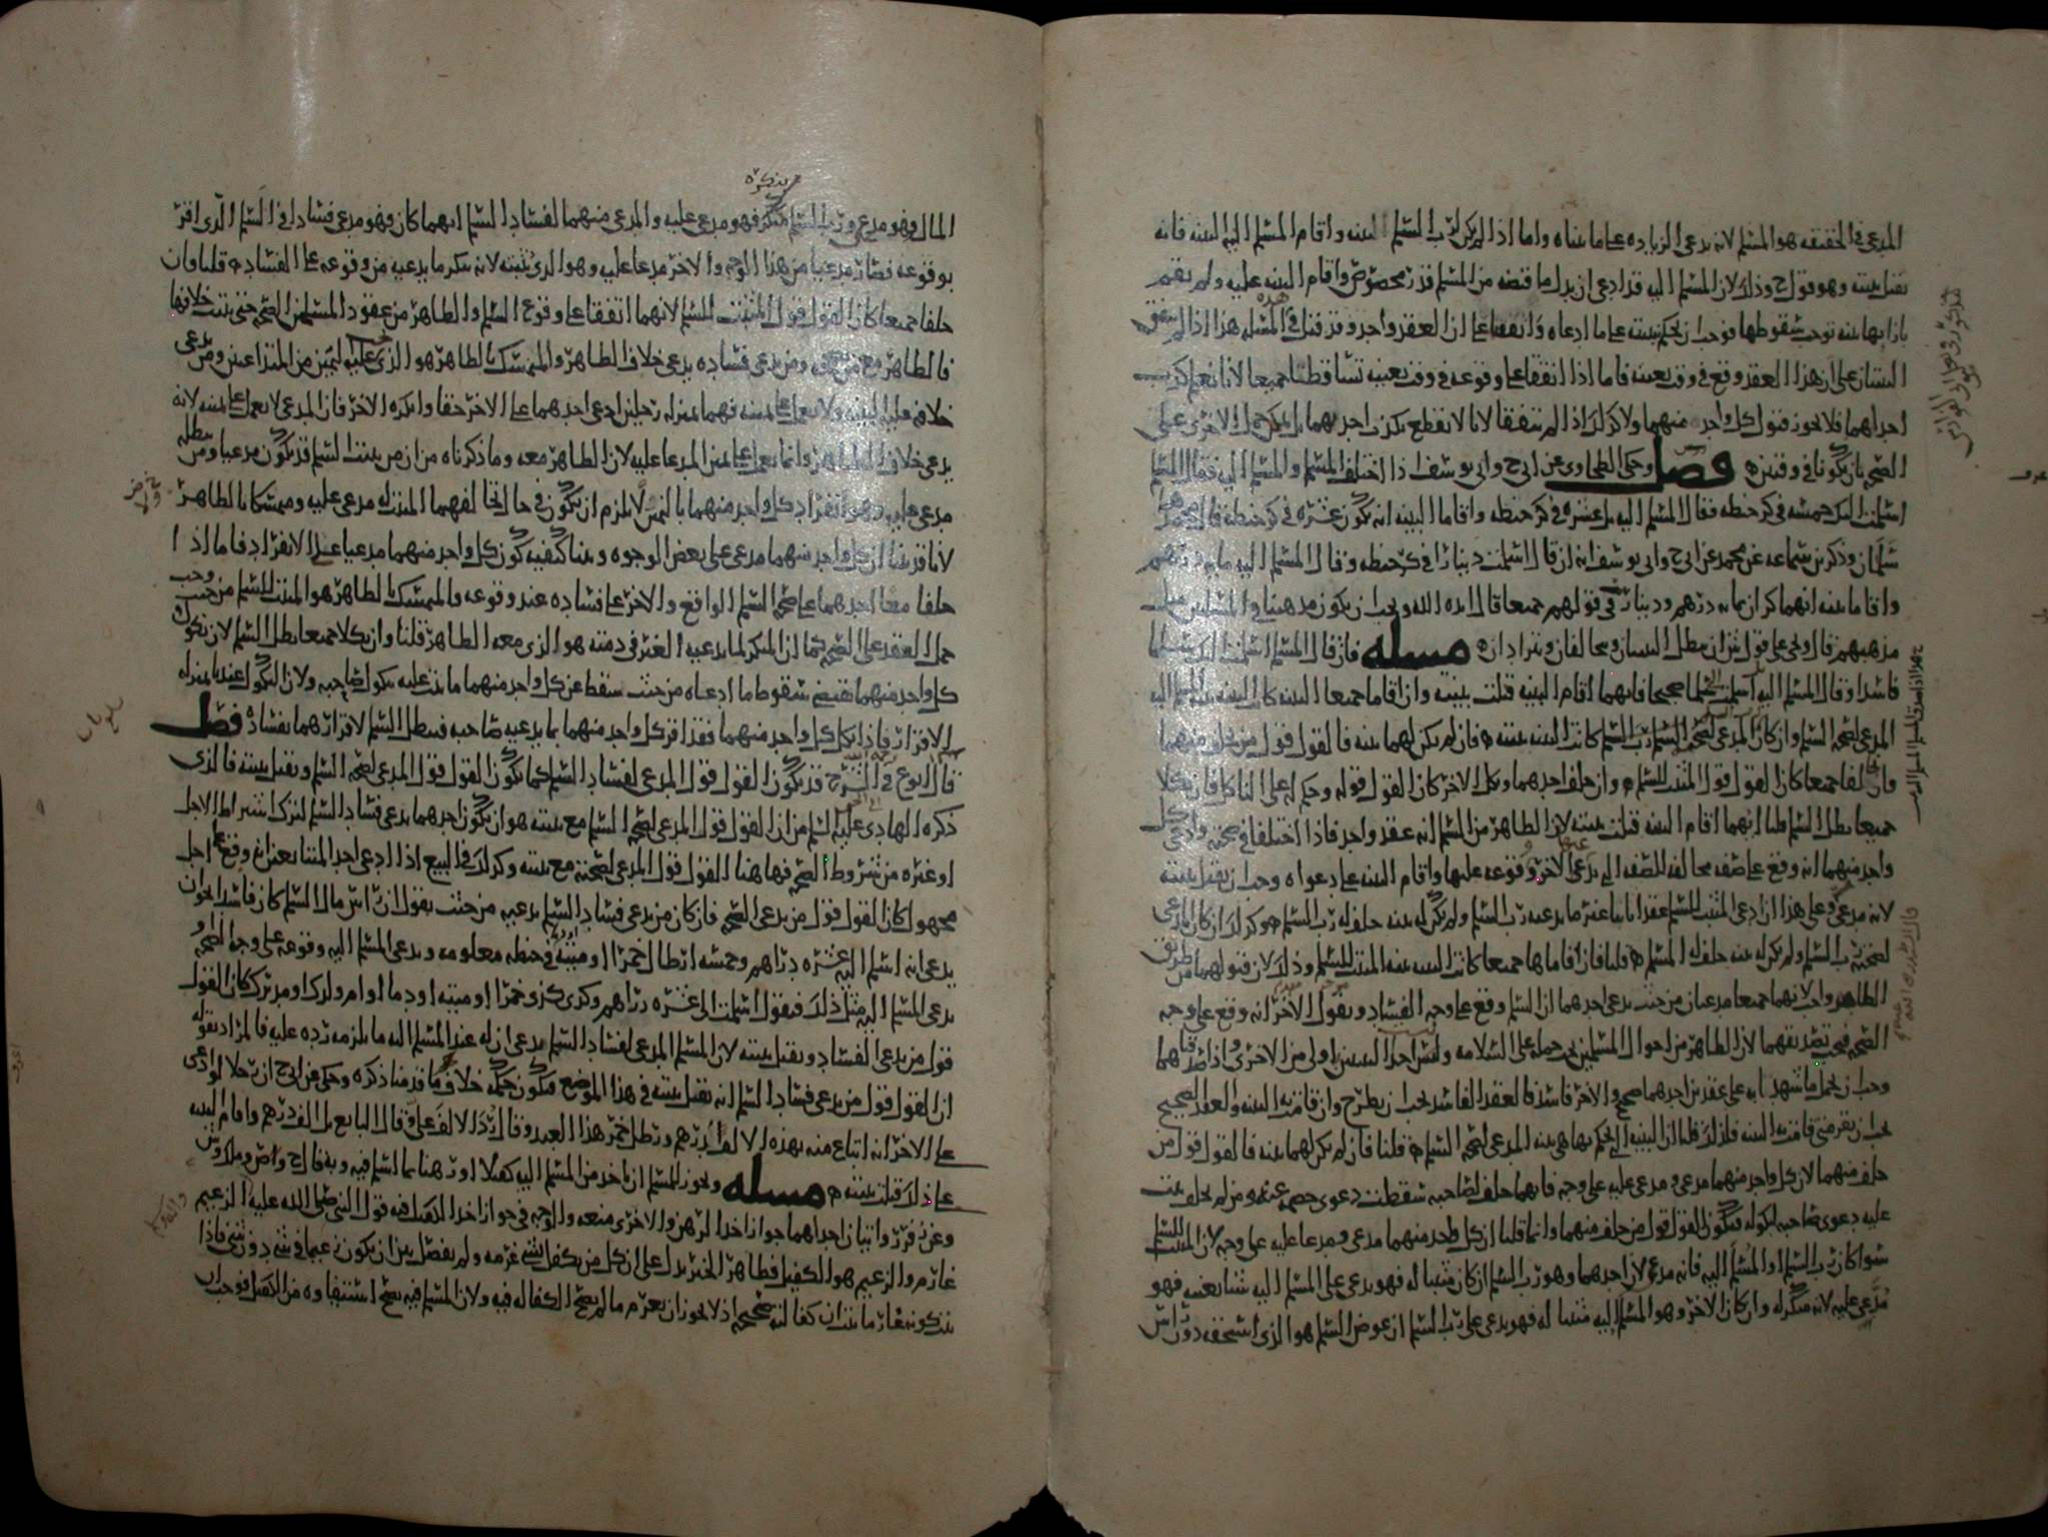 المدعي في الحقيقه هو المسلم لانه يدعي الزياده على ما بيناه واما اذا لم يكن لرب السلم البينه واقام المسلم اليه البينه فانه
تقبل بينته وهو قول ح وذلك لان المسلم اليه قد ادعى ان بدل ما قبضه من المسلم قدر مخصوص واقام البينه عليه ولم يقم
بازايها بينه توجب سقوطها فوجب ان يحكم ببينته على ما ادعاه
على ان هذا العقد وقع في وقت بعينه فاما اذا اتفقا على وقوعه في وقت بعينه تساقطتا جميعا لانا نعلم كذب
احداهما فلا يجوز قبول كل واحد منهما ولا كذلك اذا لم يتفقا لانا لا نقطع بكذب احديهما بل يمكن حمل الاخرى على
الصحه بان يكونا في وقتين فصل وحكى الطحاوي عن ابي ح وابي يوسف اذا اختلف المسلم والمسلم اليه فقال المسلم
اسلمت اليك خمسه في كر حنطه فقال المسلم اليه بل عشره في كر حنطه واقاما البينه انه يكون عشره في كر حنطه
وذكر بن سماعه عن محمد عن ابي ح وابي يوسف انه ان قال اسلمت دينارا في كر حنطه وقال المسلم اليه مايه درهم
واقاما بينه انهما كران بمايه درهم ودينار في قولهم جميعا قال ايده الله ويجب ان يكون مذهبنا
مذهبهم قال ويجي على قول ش ان تبطل البينتان ويتحالفان ويترادان مسله فان قال المسلم اسلمت اليك سلما
فاسدا وقال المسلم اليه اسلمت سلما صحيحا فايهما اقام البينه قبلت بينته وان اقاما جميعا البينه كانت البينه بينه المسلم اليه
المدعي لصحه السلم وان كان المدعي لصحه السلم رب السلم كانت البينه بينته فان لم يكن لهما بينه فالقول قول من يحلف منهما
فان حلفا جميعا كان القول قول المثبت للسلم وان حلف احدهما ونكل الاخر كان القول قوله وحكم له على الناكل فان نكلا
جميعا بطل السلم قلنا ايهما اقام البينه قبلت بينته لان الظاهر من السلم انه عقد واحد فاذا اختلفا في صحته وادعى كل
واحد منهما انه وقع على صفه مخالفه للصفه التي يدعي الاخر وقوعه عليها واقام البينه على دعواه وجب ان تقبل بينته
لانه مدعي وعلى هذا ان ادعى المثبت للسلم عقدا ثابتا غير ما يدعيه رب السلم ولم يكن له بينه حلف له رب السلم وكذلك ان كان المدعي
لصحته رب السلم ولم يكن له بينه حلف له المسلم قلنا فان اقاماها جميعا كانت البينه بينه المثبت للسلم وذلك لان قبولهما من طريق
الظاهر واجب لانهما جميعا مدعيان من حيث يدعي احدهما ان السلم وقع على وجه الفساد ويقول الاخر انه وقع على وجه
الصحه فيجب تصديقهما لان الظاهر من احوال المسلمين يجب حمله على السلامه وليس احد البينتين اولى من الاخرى واذا صدقناهما
وجب ان يحمل ما شهدتا به على عقدين احدهما صحيح والاخر فاسد فالعقد الفاسد يجب ان يطرح وان قامت به البينه والعقد الصحيح
يجب ان يقر متى قامت به البينه فلذلك قلنا ان البينه التي يحكم بها هي بينه المدعي لصحه السلم قلنا فان لم يكن لهما بينه فالقول قول من
حلف منهما لان كل واحد منهما مدعي ومدعى عليه على وجه فايهما حلف لصاحبه سقطت دعوى خصمه عنه ومن لم يحلف ثبت
عليه دعوى صاحبه لنكوله فيكون القول قول من حلف منهما وانما قلنا ان كل واحد منهما مدعي ومدعا عليه على وجه لان المثبت للسلم
سوا كان رب السلم او المسلم اليه فانه مدعي لان احدهما وهو رب السلم ان كان مثبتا له فهو يدعي على المسلم اليه شيا بعينه فهو
مدعى عليه لانه منكر له وان كان الاخر وهو المسلم اليه مثبتا له فهو يدعي على رب السلم ان عوض السلم هو الذي استحقه دون راس
المال وهو مدعي ورب السلم منكر فهو مدعى عليه والمدعي منهما لفساد السلم ايهما كان فهو مدعي فساد السلم الذي اقر
بوقوعه فصار مدعيا من هذا الوجه والاخر مدعا عليه وهو الذي يثبته لانه ينكر ما يدعيه من وقوعه على الفساد قلنا وان
حلفا جميعا كان القول قول المثبت للسلم لانهما اتفقا على وقوع السلم والظاهر من عقود المسلمين الصحه حتى يثبت خلافها
فالظاهر مع من ومن يدعي فساده يدعي خلاف الظاهر والمتمسك بالظاهر هو الذي عليه اليمين من المتداعيين ومن يدعي
خلافه عليه البينه ولا يعمل على يمينه فهما بمنزله رجلين ادعى احدهما على الاخر حقا وانكره الاخر فان المدعي لا يعمل على يمينه لانه
يدعي خلاف الظاهر وانما يعمل على يمين المدعا عليه لان الظاهر معه وما ذكرناه من ان من يثبت السلم قد يكون مدعيا ومن يبطله
مدعى عليه وهو انفراد كل واحد منهما باليمين لا يلزم ان يكون في حال تحالفهما المثبت له مدعى عليه ومتمسكا بالظاهر
لانا قد بينا ان كل واحد منهما مدعي على بعض الوجوه وبينا كيفيه كون كل واحد منهما مدعيا على الانفراد فاما اذا
حلفا معا احدهما على صحه السلم الواقع والاخر على فساده عند وقوعه فالمتمسك بالظاهر هو المثبت للسلم من حيث وجب
حمل العقد على الصحه كما ان المنكر لما يدعيه الغير في ذمته هو الذي معه الظاهر قلنا وان نكلا جميعا بطل السلم لان نكول
كل واحد منهما يقتضي سقوط ما ادعاه من حيث سقط عن كل واحد منهما ما ثبت عليه بنكول صاحبه ولان النكول عندنا بمنزله
الاقرار فاذا نكل كل واحد منهما فقد اقر كل واحد منهما بما يدعيه صاحبه فبطل السلم لاقرارهما بفساده فصل
قال ابو ع في الشرح قد يكون القول قول المدعي لفساد السلم كما يكون القول قول المدعي لصحه السلم وتقبل بينته فالذي
ذكره الهادي عليه السلم من ان القول قول المدعي لصحه السلم مع بينته هو ان يكون احدهما يدعي فساد السلم لترك اشتراط الاجل
او غيره من شروط الصحه فهاهنا القول قول المدعي لصحته مع بينته وكذلك في البيع اذا ادعى احد المتبايعين انه وقع على اجل
مجهول كان القول قول من يدعي الصحه فان كان من يدعي فساد السلم يدعيه من حيث يقول ان راس مال السلم كان فاسدا نحو ان
يدعي انه اسلم اليه عشره دراهم وخمسه ارطال خمرا او ميته في حنطه معلومه ويدعي المسلم اليه وقوعه على وجه الصحه او
يدعي المسلم اليه مثل ذلك فيقول اسلمت الي عشره دراهم وكذى كذى خمرا او ميته او دما او ام ولدك او مدبرك كان القول
قول من يدعي الفساد وتقبل بينته لان المسلم المدعي لفساد السلم يدعي ان له عند المسلم اليه ما يلزمه رده عليه فالمراد بقوله
ان القول قول من يدعي فساد السلم انه تقبل بينته في هذا الموضع فيكون حكمه خلاف ما قدمنا ذكره وحكي عن ابي ح ان رجلا لو ادعى
على الاخر انه ابتاع منه بهذه الالف درهم ورطل خمر هذا العبد وقال رد الالف علي وقال البايع بل بالف درهم واقام البينه
على ذلك قبلت بينته مسله ويجوز للمسلم ان ياخذ من المسلم اليه كفيلا او رهنا بما اسلم فيه وبه قال ح وص وش
وعن فر روايتان احداهما جواز اخذ الرهن والاخرى منعه والوجه في جواز اخذ الكفيل فيه قول النبي صلى الله عليه الزعيم
غارم والزعيم هو الكفيل فظاهر الخبر يدل على ان كل من تكفل بشي غرمه ولم يفصل بين ان يكون زعيما في شي دون شي فاذا
ثبت كونه غارما ثبت ان كفالته صحيحه اذ لا يجوز ان يغرم ما لم تصح الكفاله فيه ولان المسلم فيه يصح استيفاوه من الكفيل فوجب ان